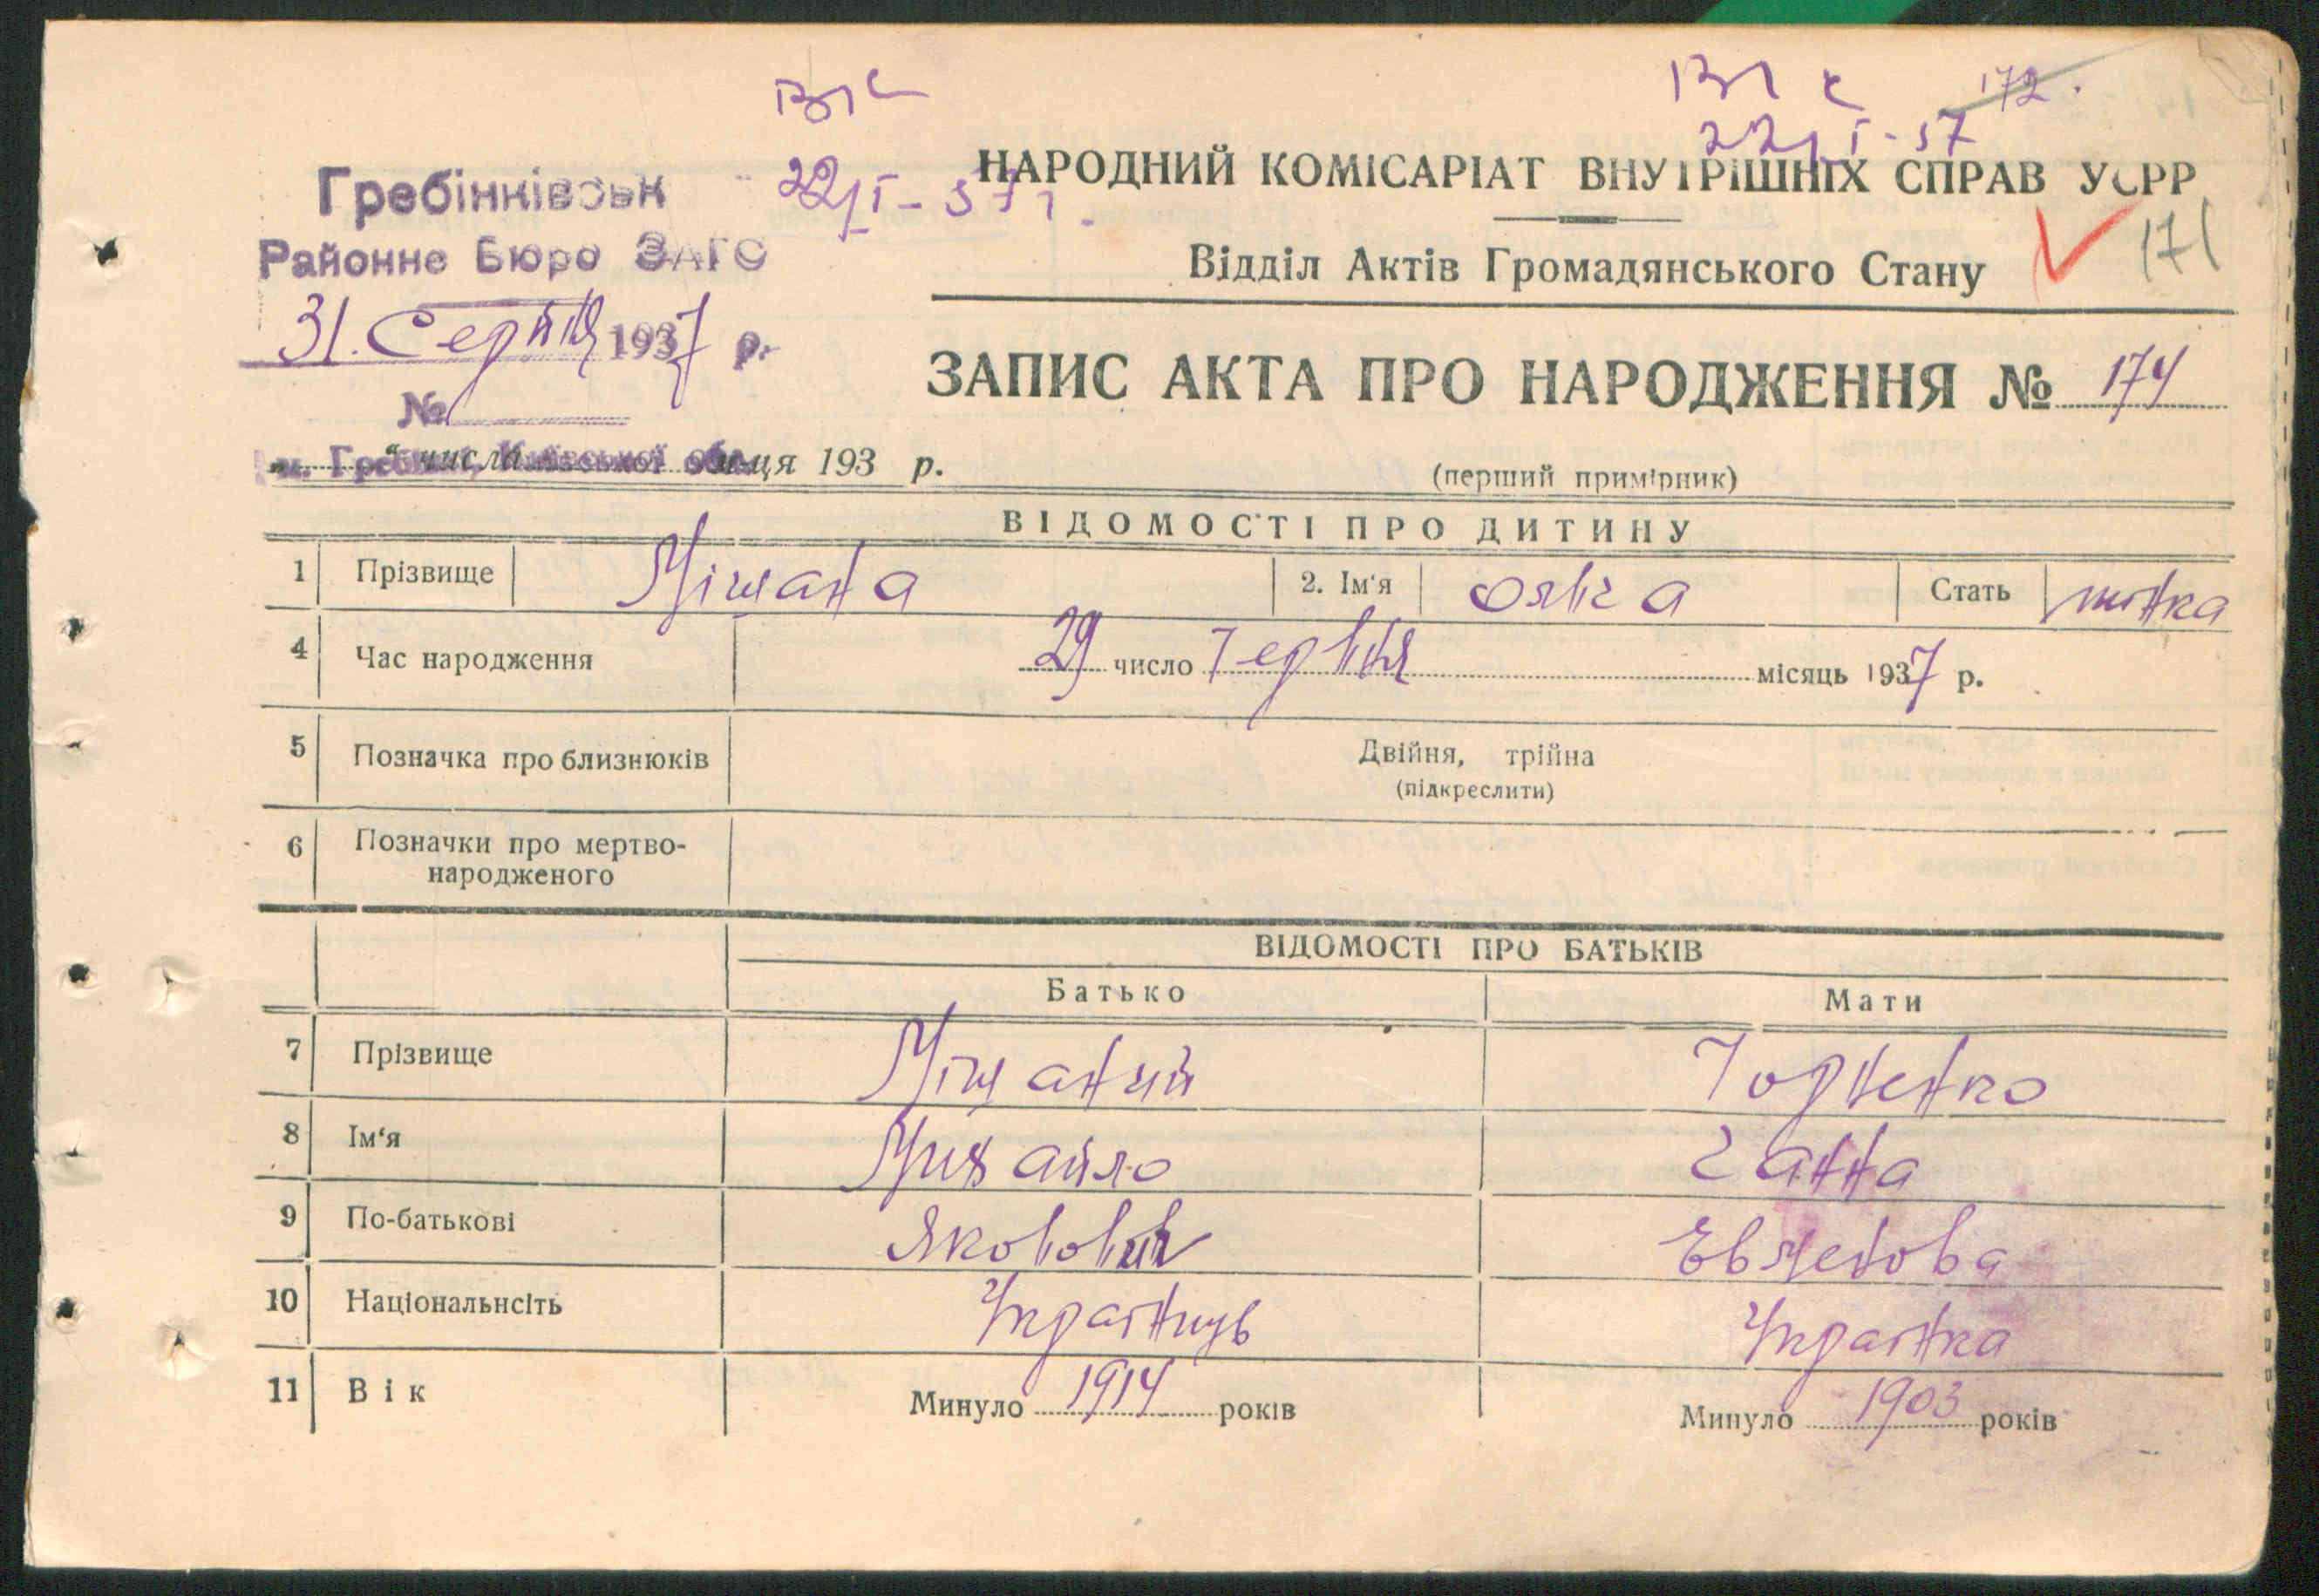 172.
22/I-57
22/I-57 г.
НАРОДНИЙ КОМІСАРІАТ ВНУТРІШНІХ СПРАВ УСРР
171
Гребінківськ
Районне Бюро ЗАГС
Відділ Актів Громадянського Стану
31. Серпня 1937 р.
№
ЗАПИС АКТА ПРО НАРОДЖЕННЯ № 174
м. Гребінки, Київської обл.
" числа ця 193 р.
(перший примірник)
ВІДОМОСТІ ПРО ДИТИНУ
1 Прізвище Міщана 2. Ім'я Ольга Стать жінка
4 Час народження 29 число Червня місяць 1937 р.
5 Позначка про близнюків Двійня, трійна
(підкреслити)
6 Позначки про мертво-
народженого
ВІДОМОСТІ ПРО БАТЬКІВ
Батько Мати
7 Прізвище Міщаний Чорненко
8 Ім'я Михайло Ганна
9 По-батькові Якович
10 Національнсіть Українць Українка
11 Вік Минуло 1914 років Минуло 1903 років